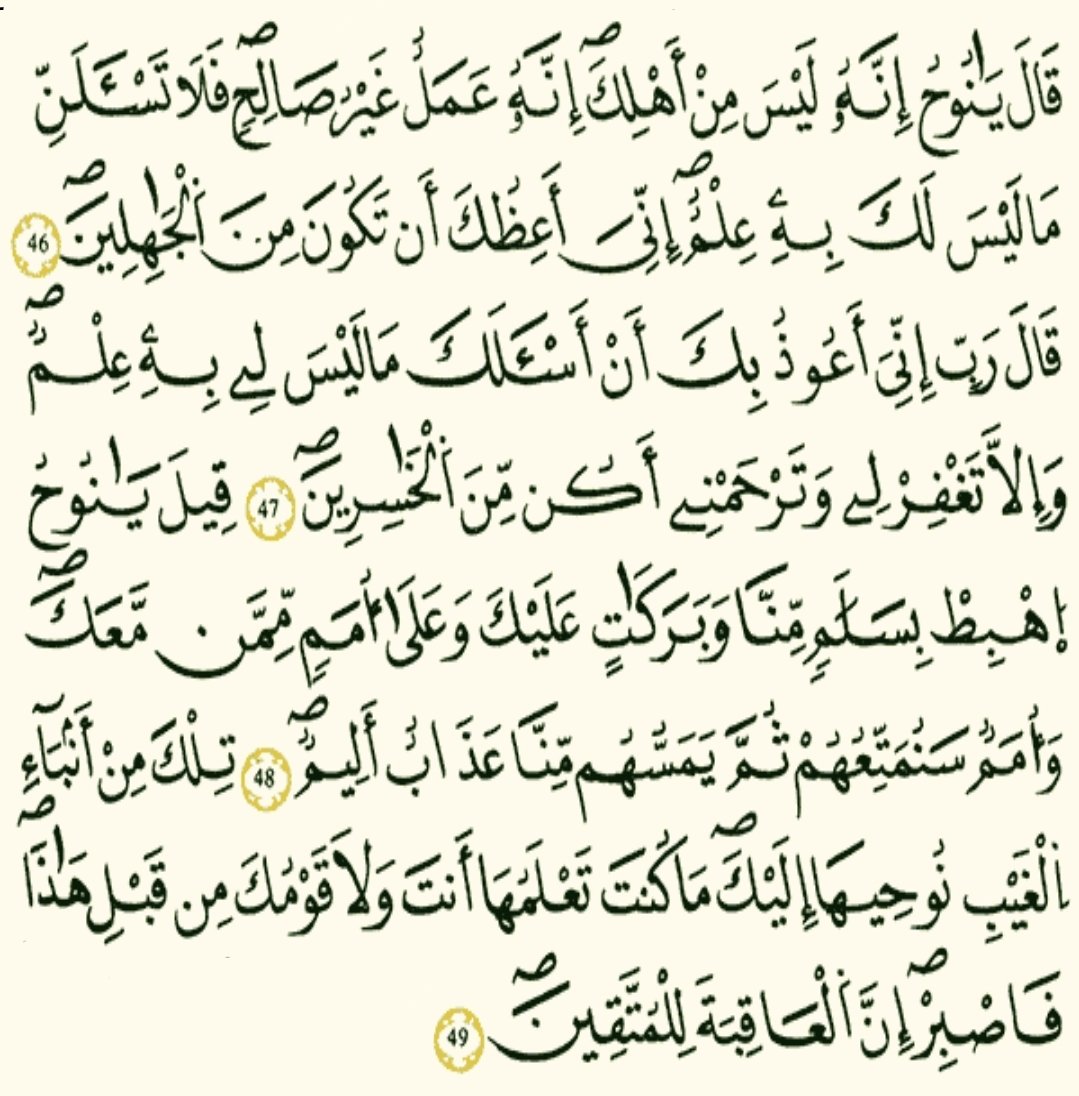 قَالَ يَٰنُوحُ إِنَّهُۥ لَيْسَ مِنْ أَهْلِكَۖ إِنَّهُۥ عَمَلٌ غَيْرُ صَٰلِحٖ فَلَا تَسْـَٔلَنِّ
مَا لَيْسَ لَكَ بِهِۦ عِلْمٌۖ إِنِّيَ أَعِظُكَ أَن تَكُونَ مِنَ اَ۬لْجَٰهِلِينَۖ 46
قَالَ رَبِّ إِنِّيَ أَعُوذُ بِكَ أَنْ أَسْـَٔلَكَ مَا لَيْسَ لِے بِهِۦ عِلْمٞۖ
وَإِلَّا تَغْفِرْ لِے وَتَرْحَمْنِے أَكُن مِّنَ اَ۬لْخَٰسِرِينَۖ 47 قِيلَ يَٰنُوحُ
اُ۪هْبِطْ بِسَلَٰمٖ مِّنَّا وَبَرَكَٰتٍ عَلَيْكَ وَعَلَىٰٓ أُمَمٖ مِّمَّن مَّعَكَۖ
وَأُمَمٞ سَنُمَتِّعُهُمْ ثُمَّ يَمَسُّهُم مِّنَّا عَذَابٌ أَلِيمٞۖ 48 تِلْكَ مِنْ أَنۢبَآءِ
اِ۬لْغَيْبِ نُوحِيهَا إِلَيْكَۖ مَا كُنتَ تَعْلَمُهَا أَنتَ وَلَا قَوْمُكَ مِن قَبْلِ هَٰذَاۖ
فَاصْبِرْۖ إِنَّ اَ۬لْعَٰقِبَةَ لِلْمُتَّقِينَۖ 49